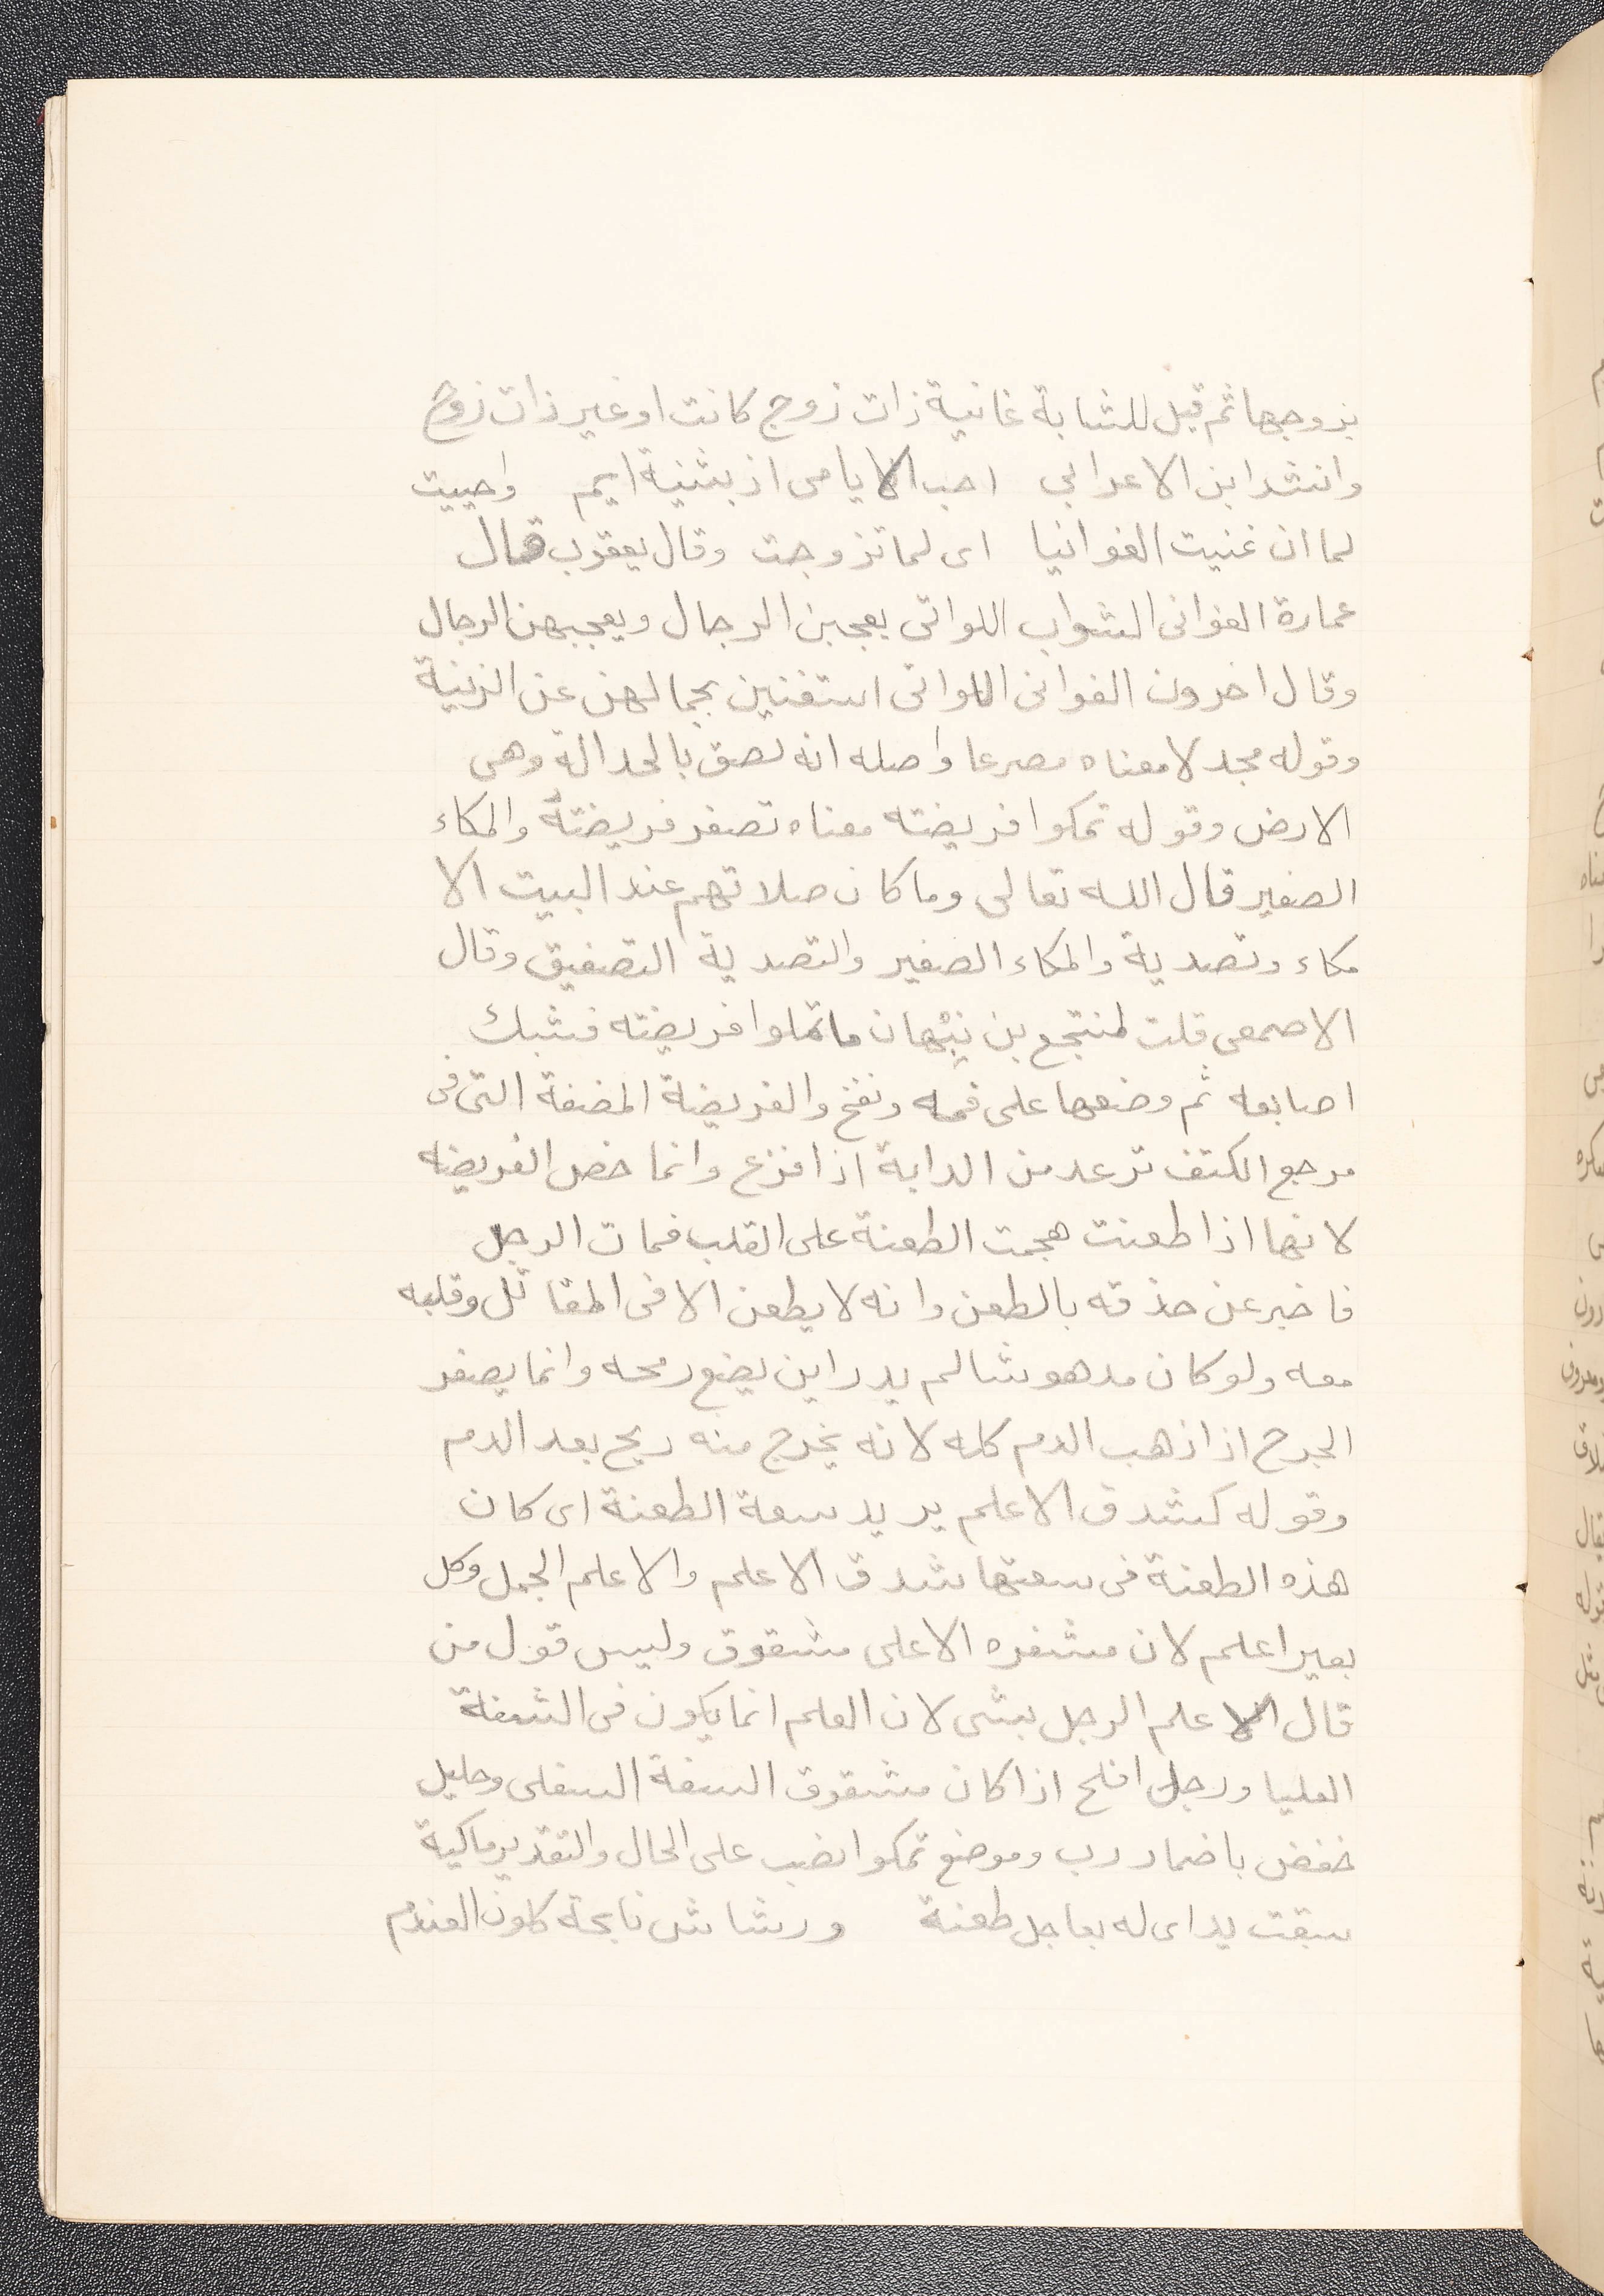 بزوجها ثم قيل للشابة غانية ذات زوج كانت او غير ذات زوج
وانشد ابن الاعرابي احب الايامى اذ بثنية ايم واحببت
لما ان غنيت الغوانيا اى لما تزوجت وقال يعقوب قال
عمارة الغوانى الشواب اللواتى يعجبن الرجال ويعجبهن الرجال
وقال اخرون الغوانى اللواتى استغنين بجمالهن عن الزينة
وقوله مجدلا معناه مصرعا واصله انه لصق بالجدالة وهى
الارض وقوله تمكوا فريضته معناه تصفر فريضته والمكاء
الصفير قال الله تعالى وما كان صلاتهم عند البيت الا
مكاء وتصدية والمكاء الصفير والتصدية التصفيق وقال
الاصمعى قلت لمنتجع بن نبهان ما تمكوا فريضته فشبك
اصابعه ثم وضعها على فمه ونفخ والفريضة المضغة التى فى
مرجع الكتف ترعد من الدابة اذا فزع وانما خص الفريضه
لانها اذا طعنت هجمت الطعنة على القلب فمات الرجل
فاخبر عن حذقه بالطعن وانه لا يطعن الا فى المقاتل وقلبه
معه ولو كان مدهوشا لم يدر اين يضع رمحه وانما يصفر
الجرح اذا ذهب الدم كله لانه يخرج منه ريح بعد الدم
وقوله كشدق الاعلم يريد سعة الطعنة اى كان
هذه الطعنة فى سعتها شدق الاعلم والاعلم الجمل وكل
بعير اعلم لان مشفره الاعلى مشقوق وليس قول من
قال الاعلم الرجل بشى لان العلم انما يكون فى الشفة
العليا ورجل افلح اذا كان مشقوق السفة السفلى وحليل
خفض باضمار رب وموضع تمكوا نصب على الحال والتقدير ماكية
سبقت يداى له بعاجل طعنة ورشاش نابحة كلون العندم